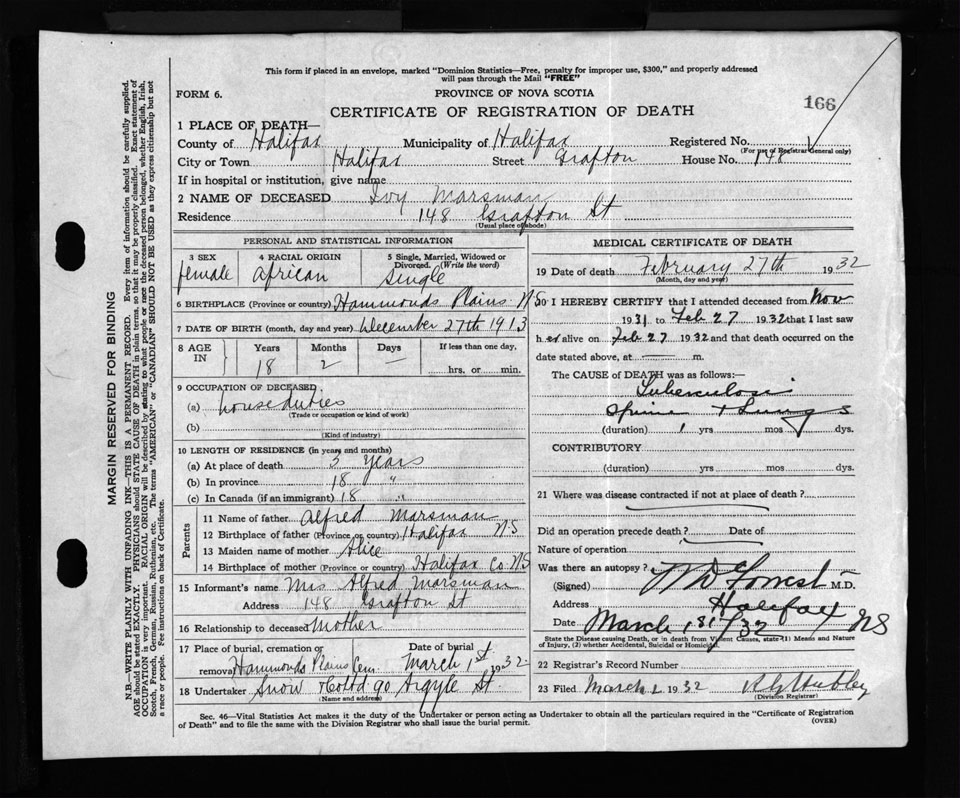 This form if placed in an envelope, marked "Dominion Statistics—Free, penalty for improper use, $300," and properly addressed
will pass through the Mail "FREE"
FORM 6.
PROVINCE OF NOVA SCOTIA
166
CERTIFICATE OF REGISTRATION OF DEATH
1 PLACE OF DEATH—
County of Halifax Municipality of Halifax Registered No.
(For use of Registrar General only)
City or Town Halifax Street Grafton House No. 148
If in hospital or institution, give name
2 NAME OF DECEASED Ivy Marsman
Residence 148 Grafton St
(Usual place of abode)
PERSONAL AND STATISTICAL INFORMATION
3 SEX 4 RACIAL ORIGIN 5 Single, Married, Widowed or
Divorced. (Write the word)
female African Single
6 BIRTHPLACE (Province or country) Hammonds Plains NS
7 DATE OF BIRTH (month, day and year) December 27th 1913
8 AGE IN Years Months Days If less than one day,
18 2 — hrs. or min.
9 OCCUPATION OF DECEASED
(a) house duties
(Trade or occupation or kind of work)
(b)
(Kind of industry)
10 LENGTH OF RESIDENCE (in years and months)
(a) At place of death 3 Years
(b) In province 18 "
(c) In Canada (if an immigrant) 18 "
Parents
11 Name of father Alfred Marsman
12 Birthplace of father (Province or country) Halifax NS
13 Maiden name of mother Alice
14 Birthplace of mother (Province or country) Halifax Co NS
15 Informant's name Mrs Alfred Marsman
Address 148 Grafton St
16 Relationship to deceased Mother
17 Place of burial, cremation or removal Hammonds Plains Cem. Date of burial March 1st 1932
18 Undertaker Snow & Co Ltd 90 Argyle St.
(Name and address)
MEDICAL CERTIFICATE OF DEATH
19 Date of death February 27th 1932
(Month, day and year)
20 I HEREBY CERTIFY that I attended deceased from Nov
1931 to Feb 27 1932 that I last saw
her alive on Feb 27 1932 and that death occurred on the
date stated above, at — m.
The CAUSE OF DEATH was as follows:—
Tuberculosis
Spine + Lungs
(duration) 1 yrs mos dys.
CONTRIBUTORY
(duration) yrs mos dys.
21 Where was disease contracted if not at place of death?
Did an operation precede death? Date of
Nature of operation
Was there an autopsy?
(Signed) W D Forrest M.D.
Address Halifax
Date March 1st/32 NS
State the Disease causing Death, or in death from Violent Causes, state (1) Means and Nature
of Injury, (2) whether Accidental, Suicidal or Homicidal.
22 Registrar's Record Number
23 Filed March 1932
(Division Registrar)
Sec. 46—Vital Statistics Act makes it the duty of the Undertaker or person acting as Undertaker to obtain all the particulars required in the "Certificate of Registration
of Death" and to file the same with the Division Registrar who shall issue the burial permit.
(OVER)
MARGIN RESERVED FOR BINDING
N.B.—WRITE PLAINLY WITH UNFADING INK—THIS IS A PERMANENT RECORD. Every item of information should be carefully supplied.
AGE should be stated EXACTLY. PHYSICIANS should STATE CAUSE OF DEATH in plain terms, so that it may be properly classified. Exact statement of
OCCUPATION is very important. RACIAL ORIGIN will be described by stating to what people or race the deceased person belonged, whether English, Irish,
Scotch, French, German, Russian, Ruthenian, etc. The terms "AMERICAN" or "CANADIAN" SHOULD NOT BE USED as they express citizenship but not
a race or people. See instructions on back of Certificate.